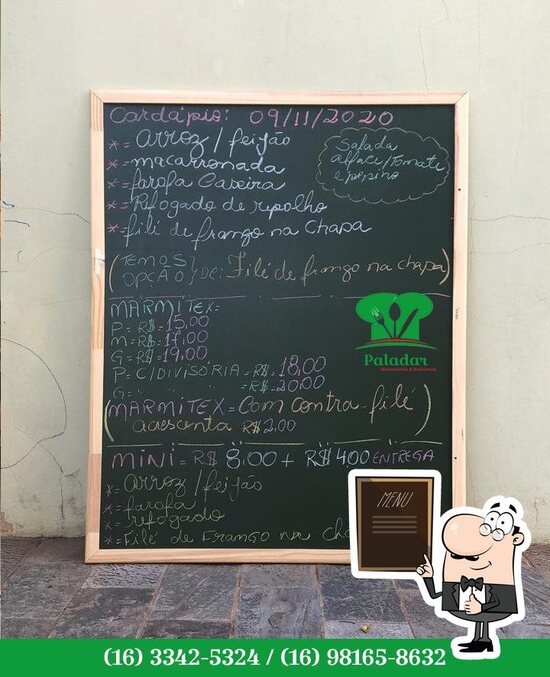 Cardápio: 09/11/2020
*= arroz/feijão
*= macarronada
*= farofa Caseira
*= Refogado de repolho
*= filé de frango na chapa
Salada
alface/Tomate
e pepino
(TEMOS OPÇÃO} DE: Filé de frango na chapa)
MARMITEX=
P= R$= 15,00
M= R$= 17,00
G= R$= 19,00
P= C/DIVISÓRIA = R$= 18,00
G= = R$= 20,00
(MARMITEX = Com contra-filé
acrescenta R$ 2,00)
MINI = R$ 8,00 + R$ 4,00 ENTREGA
*= arroz/feijão
*= farofa
*= refogado
*= Filé de Frango na
Paladar
MENU
(16) 3342-5324 / (16) 98165-8632